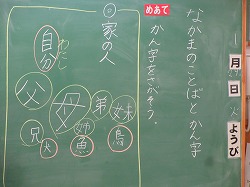 月
日
ようび
なかまのことばとかん字
めあて
かん字をさがそう。
◎家の人
わたし
自分
父
母
弟
妹
兄
姉
犬
魚
鳥